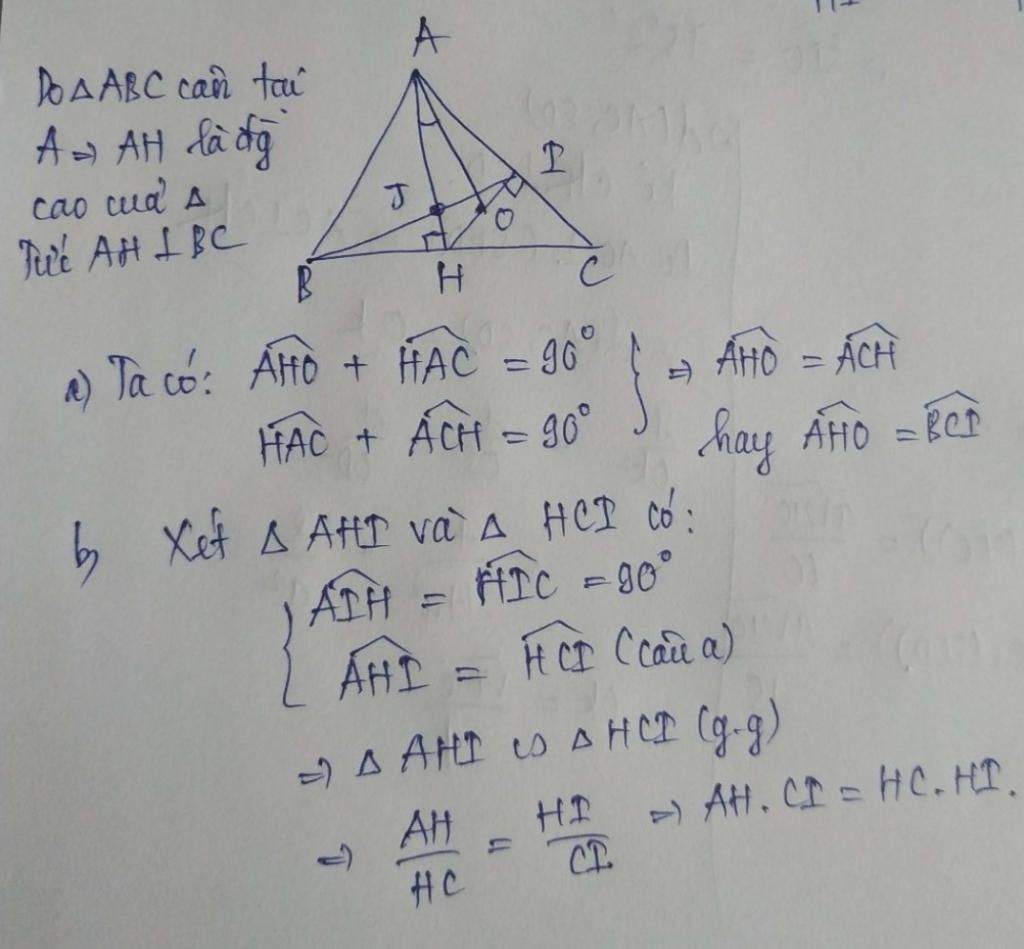 Do △ABC cân tại
A ⇒ AH là đg̀
cao của △
Tức AH ⊥ BC
A
I
J
O
B
H
C
a) Ta có: \widehat{AHO} + \widehat{HAC} = 90° } ⇒ \widehat{AHO} = \widehat{ACH}
\widehat{HAC} + \widehat{ACH} = 90° hay \widehat{AHO} = \widehat{BCI}
b) Xét △ AHI và △ HCI có:
{ \widehat{AIH} = \widehat{HIC} = 90°
\widehat{AHI} = \widehat{HCI} (câu a)
⇒ △ AHI ∽ △ HCI (g.g)
⇒ \frac{AH}{HC} = \frac{HI}{CI} ⇒ AH . CI = HC . HI.